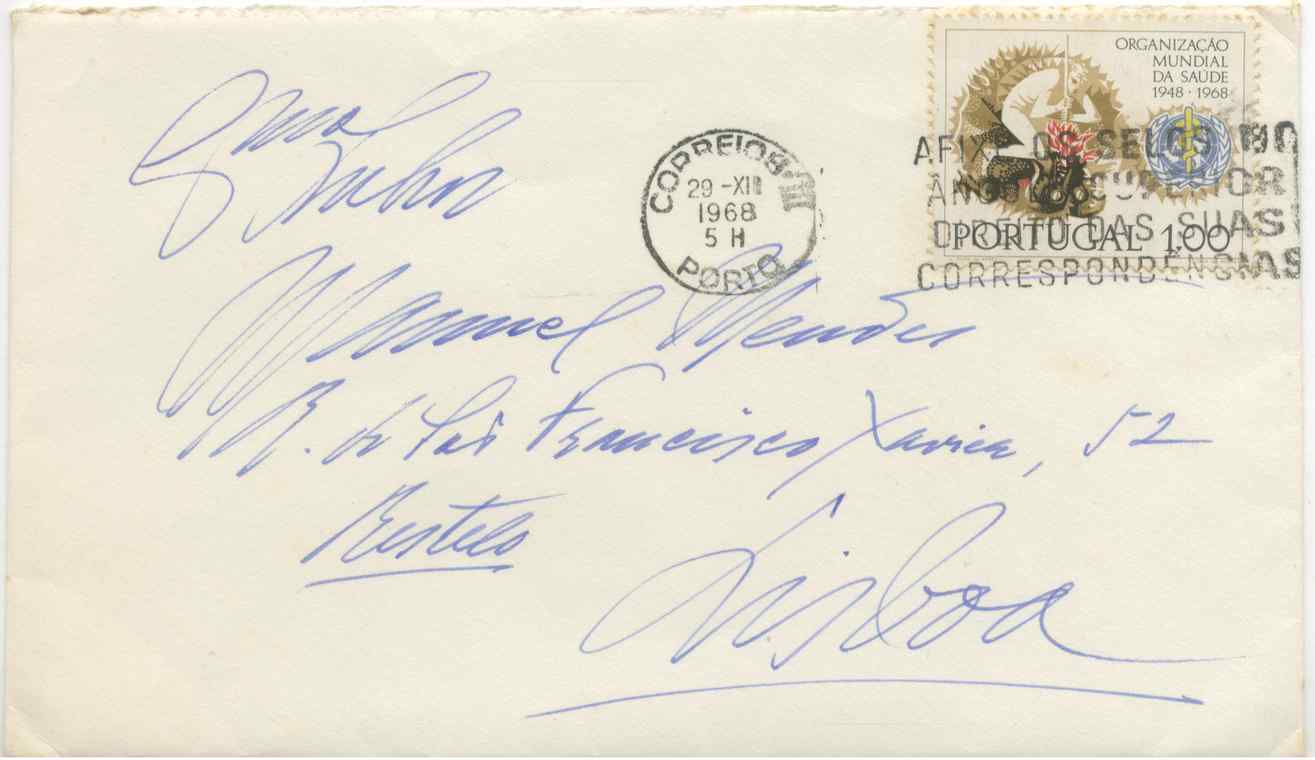 Exmo
Senhor
Manuel Mendes
R. de São Francisco Xavier, 52
Restelo
Lisboa
CORREIOS
29-XII
1968
5 H
PORTO
ORGANIZAÇÃO
MUNDIAL
DA SAÚDE
1948 · 1968
PORTUGAL 1.00
AFIXE OS SELOS NO
ÂNGULO SUPERIOR
DIREITO DAS SUAS
CORRESPONDÊNCIAS